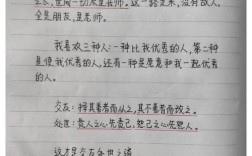 全是朋友,是老师。
我喜欢三种人:一种比我优秀的人,第二种
是使我优秀的人,还有一种是愿意和我一起优秀
的人。
交友:择其善者而从之,其不善者而改之。
处世:责人之心先责己,恕己之心先恕人。
这才是交友处世之道